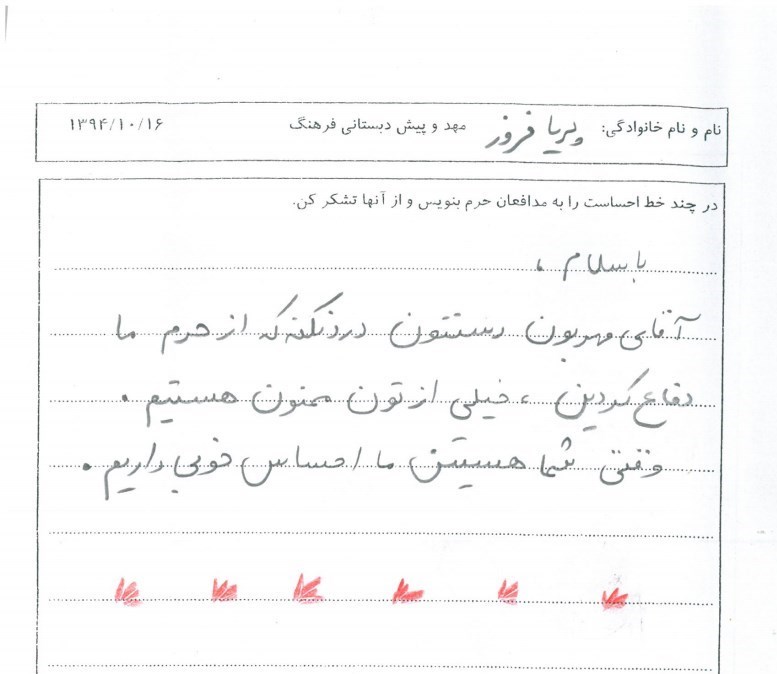 نام و نام خانوادگی: پریا فروز مهد و پیش دبستانی فرهنگ ۱۳۹۴/۱۰/۱۶
در چند خط احساست را به مدافعان حرم بنویس و از آنها تشکر کن.
با سلام ،
آقای مهربون دستتون درد نکنه که از حرم ما
دفاع کردین ، خیلی از تون ممنون هستیم .
وقتی شما هستین ما احساس خوبی داریم .